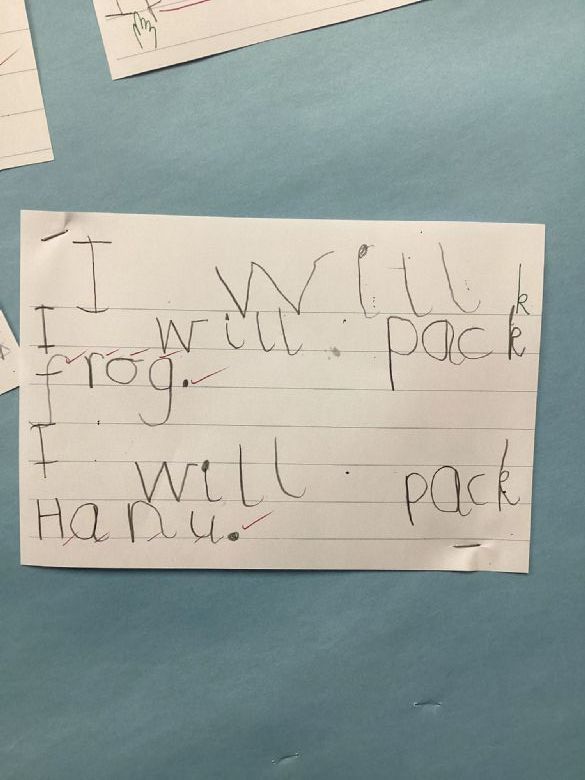 I will
k
I will pack
frog.
I will pack
Hanu.